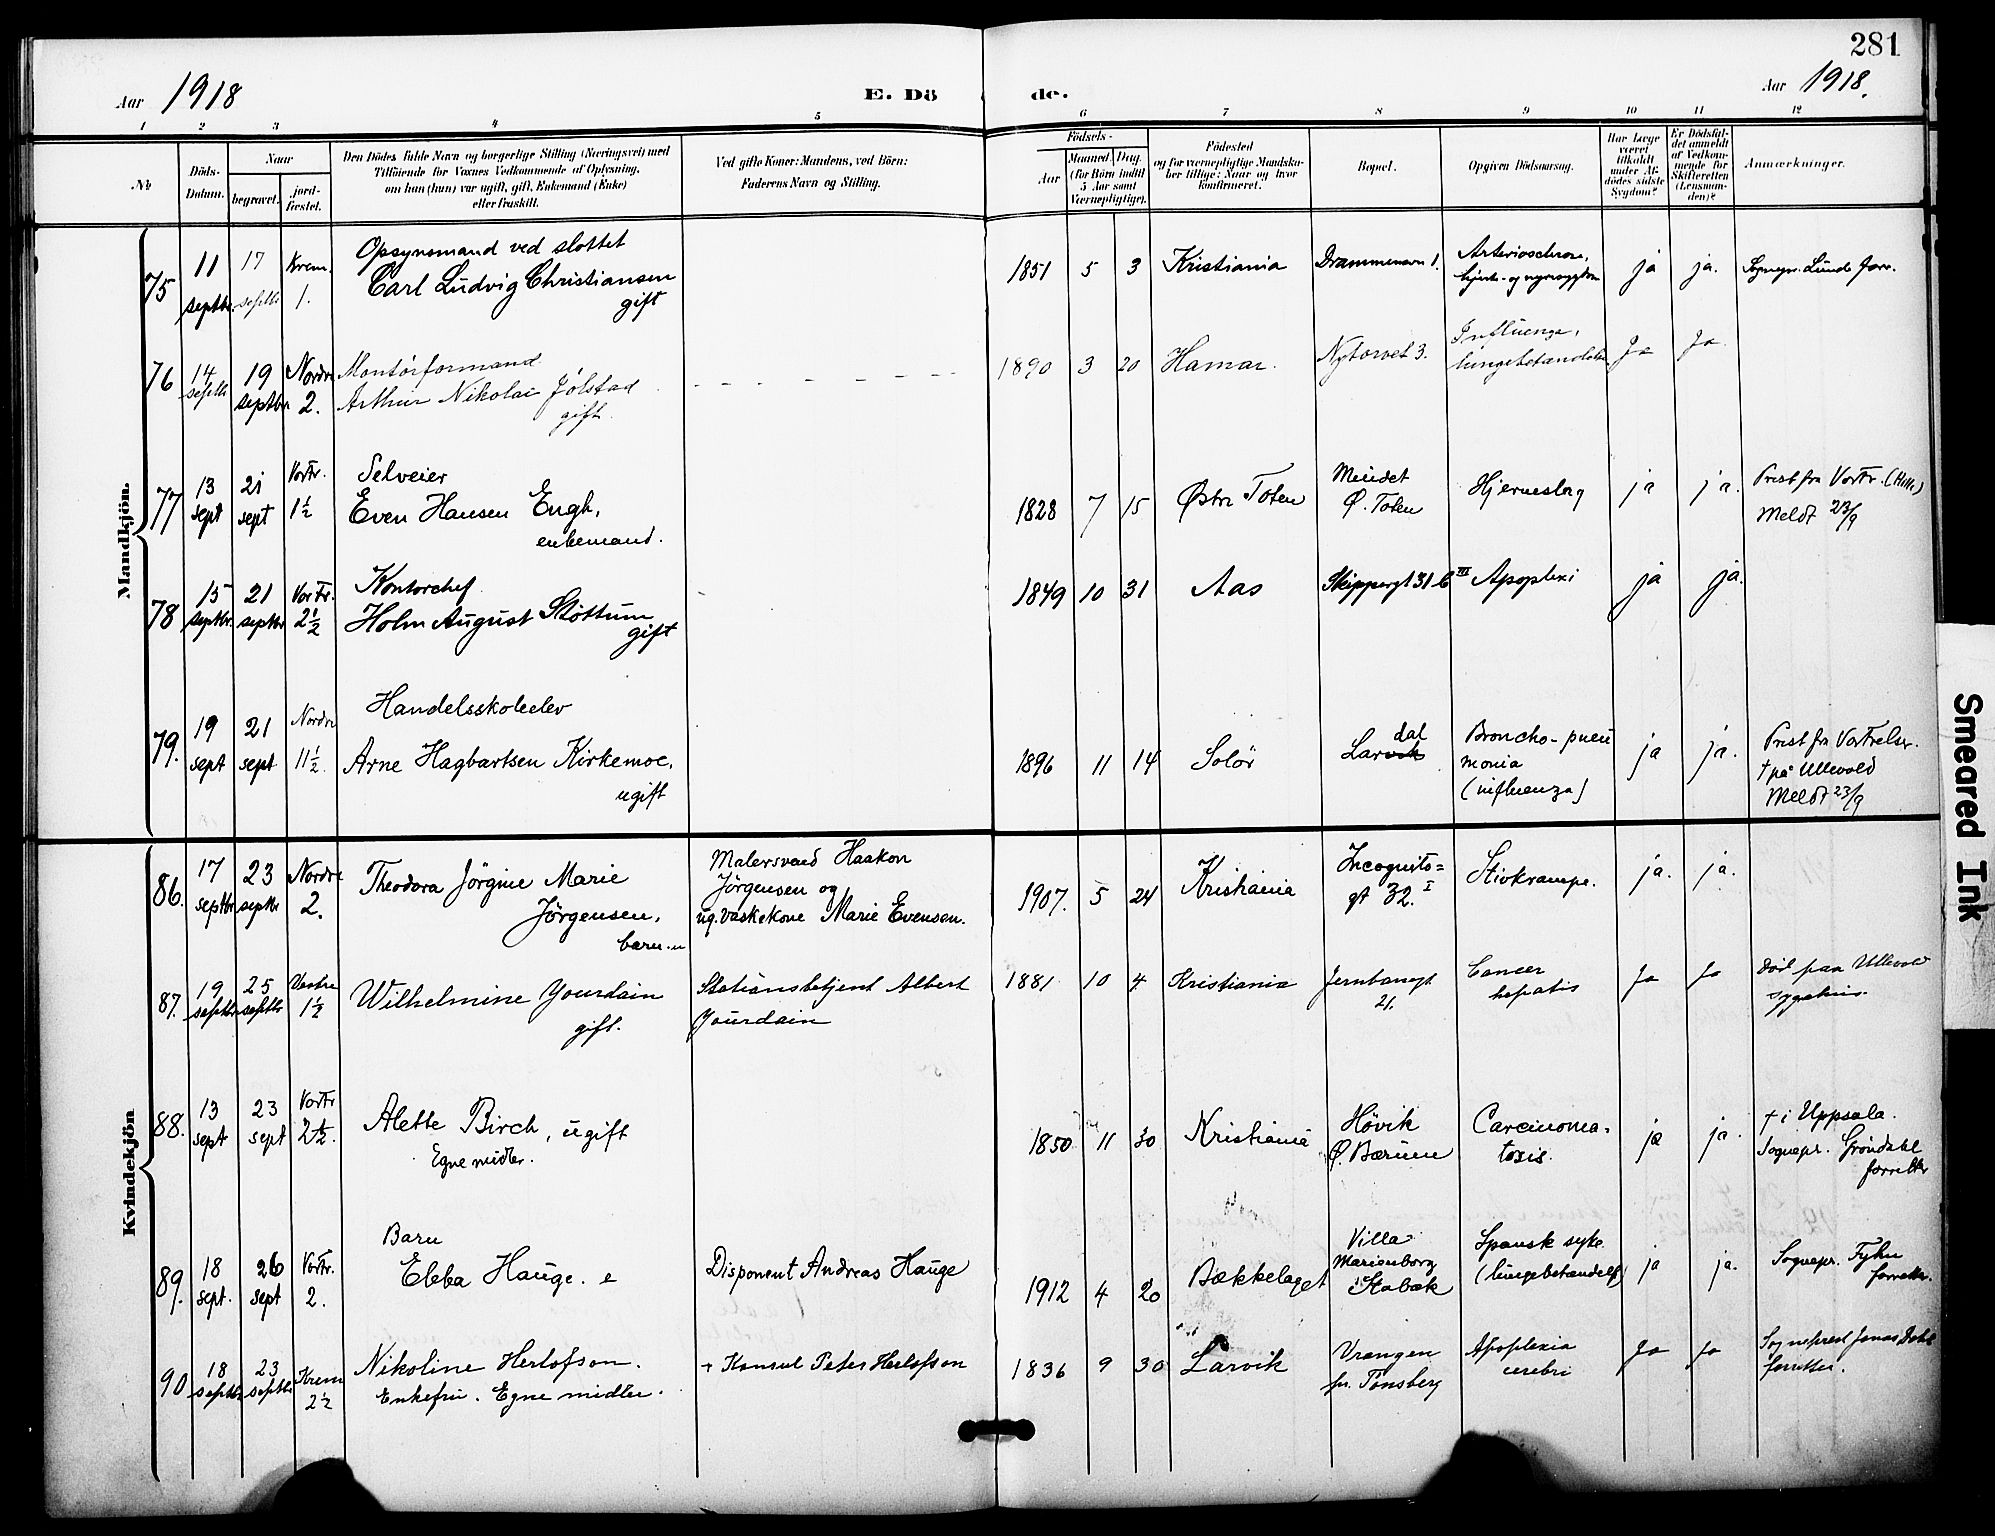 281
Aar 1918
E. Dö de.
Aar 1918.
1 2 3 4 5 6 7 8 9 10 11 12
No
Döds-
Datum.
Naar
begravet.
jord-
fæstet.
Den Dödes fulde Navn og borgerlige Stilling (Næringsvei) med
Tilföiende for Voxnes Vedkommende af Oplysning,
om han (hun) var ugift, gift, Enkemand (Enke)
eller fraskilt.
Ved gifte Koner: Mandens, ved Börn:
Faderens Navn og Stilling.
Födsels-
Aar
Maaned. Dag.
(for Börn indtil
5 Aar samt
Værnepligtige).
Födested
og for værnepligtige Mandsku-
ber tillige: Naar og hvor
konfirmeret.
Bopæl.
Opgiven Dödsaarsag.
Har Læge
været
tilkaldt
under Af-
dödes sidste
Sygdom?
Er Dödsfal-
det anmeldt
af Vedkom-
mende for
Skifteretten
(Lensman-
den)?
Anmærkninger.
Mandkjön.
75
11
septbr.
17
septbr
Krem.
1.
Opsynsmand ved slottet
Carl Ludvig Christiansen
gift
1851 5 3
Kristiania
Drammensvn 1.
Arteriosclerose,
hjerte- og nyresygdom
ja
ja.
Sognepr. Lunde forr.
76
14
septbr
19
septbr
Nordre
2.
Montørformand
Arthur Nikolai Jølstad
gift.
1890 3 20
Hamar.
Nytorvet 3.
Influenza,
lungebetændelse
Ja
Ja
77
13
sept
21
sept
Vor Fr.
1½
Selveier
Even Hansen Engh,
enkemand.
1828 7 15
Østre Toten
Ø. Toten
Hjerneslag
ja
ja.
Prest fra Vor Fr.
Meldt 23/9
78
15
septbr.
21
septbr
Vor Fr.
2½
Kontorchef
Holm August Støttum
gift
1849 10 31
Aas
Skippergt 31 b III
Apoplexi
ja
ja.
79.
19
sept
21
sept
Nordre
11½
Handelsskoleelev
Arne Hagbartsen Kirkemoe,
ugift
1896 11 14
Solør
dal
Larvik
Broncho-pneu
monia
(influenza)
ja
ja.
Prest fra Vor Frelser.
† på Ullevold
Meldt 23/9
Kvindekjön
86.
17
septbr
23
septbr
Nordre
2.
Theodora Jörgine Marie
Jörgensen,
barn. u
Malersvend Haakon
Jörgensen og
ug. vaskekone Marie Evensen.
1907. 5 24
Kristiania
Incognito=
gt 32. I
Stivkrampe.
ja.
ja.
87.
19
septbr
25
septbr
Vestre
1½
Wilhelmine Yourdain
gift.
Stationsbetjent Albert
Yourdain
1881 10 4
Kristiania
Jernbanegt
21.
Cancer
hepatis
Ja
Ja
Död paa Ullevold
sygehus.
88.
13
sept
23
sept
Vor Fr
2½.
Alette Birch, ugift
Egne midler.
1850 11 30
Kristiania
Hövik
Ø. Bærum
Carcinoma-
tosis.
ja
ja.
† i Uppsala.
Sognepr. Gröndahl
forrettr
89.
18
sept.
26
sept
Vor Fr.
2.
Barn
Ebba Hauge. e
Disponent Andreas Hauge
1912 4 20
Bækkelaget
Villa
Marienborg
Stabæk
Spansk syke
(lungebetændelse)
ja
ja.
Sognepr. Fyhn
forretter.
90
18
septbr
23
septbr
Krem
2½
Nikoline Herlofson.
Enkefru. Egne midler.
+ Konsul Peter Herlofson
1836 9 30
Larvik
Vrengen
pr. Tönsberg
Apoplexia
cerebri
Ja
Ja
Sogneprest Jonas Dahl
forretter.
Smeared Ink